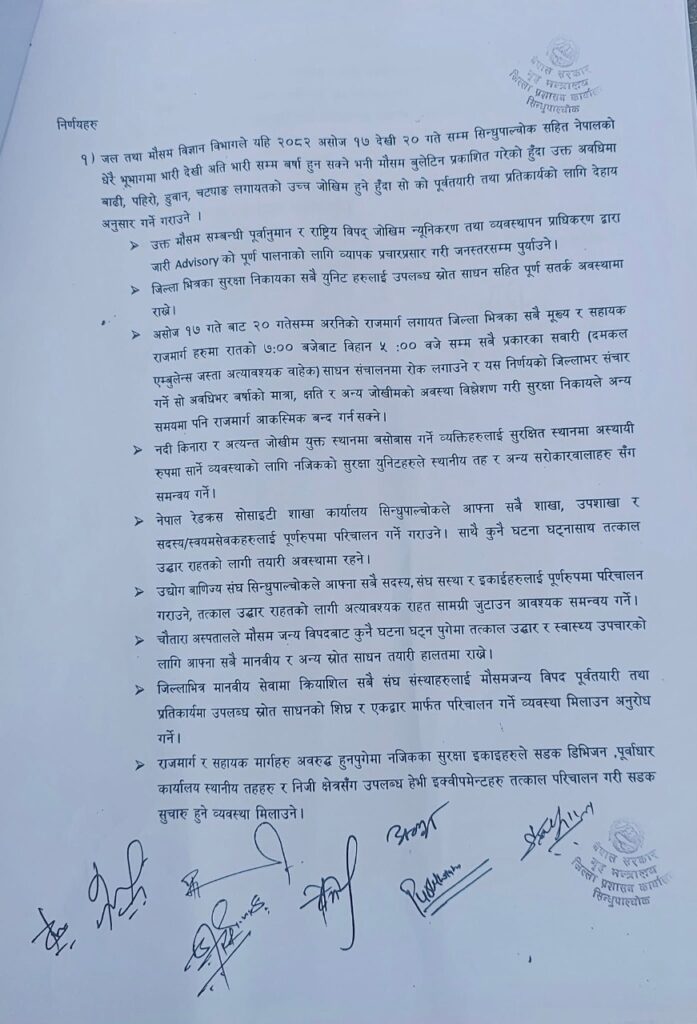 नेपाल सरकार
गृह मन्त्रालय
जिल्ला प्रशासन कार्यालय
सिन्धुपाल्चोक
निर्णयहरु
१) जल तथा मौसम विज्ञान विभागले यहि २०८२ असोज १७ देखी २० गते सम्म सिन्धुपाल्चोक सहित नेपालको
धेरै भूभागमा भारी देखी अति भारी सम्म बर्षा हुन सक्ने भनी मौसम बुलेटिन प्रकाशित गरेको हुँदा उक्त अवधिमा
बाढी, पहिरो, डुवान, चटपाङ लगायतको उच्च जोखिम हुने हुँदा सो को पूर्वतयारी तथा प्रतिकार्यको लागि देहाय
अनुसार गर्ने गराउने ।
➢ उक्त मौसम सम्बन्धी पूर्वानुमान र राष्ट्रिय विपद् जोखिम न्यूनिकरण तथा व्यवस्थापन प्राधिकरण द्वारा
जारी Advisory को पूर्ण पालनाको लागि व्यापक प्रचारप्रसार गरी जनस्तरसम्म पुर्याउने।
➢ जिल्ला भित्रका सुरक्षा निकायका सबै युनिट हरुलाई उपलब्ध स्रोत साधन सहित पूर्ण सतर्क अवस्थामा
राख्ने।
➢ असोज १७ गते बाट २० गतेसम्म अरनिको राजमार्ग लगायत जिल्ला भित्रका सबै मूख्य र सहायक
राजमार्ग हरुमा रातको ७:०० बजेबाट विहान ५ :०० वजे सम्म सबै प्रकारका सवारी (दमकल
एम्बुलेन्स जस्ता अत्यावश्यक वाहेक) साधन संचालनमा रोक लगाउने र यस निर्णयको जिल्लाभर संचार
गर्ने सो अवधिभर बर्षाको मात्रा, क्षति र अन्य जोखीमको अवस्था विश्लेशण गरी सुरक्षा निकायले अन्य
समयमा पनि राजमार्ग आकस्मिक बन्द गर्न सक्ने।
➢ नदी किनारा र अत्यन्त जोखीम युक्त स्थानमा बसोबास गर्ने व्यक्तिहरुलाई सुरक्षित स्थानमा अस्थायी
रुपमा सार्ने व्यवस्थाको लागि नजिकको सुरक्षा युनिटहरुले स्थानीय तह र अन्य सरोकारवालाहरु सँग
समन्वय गर्ने।
➢ नेपाल रेडक्रस सोसाइटी शाखा कार्यालय सिन्धुपाल्चोकले आफ्ना सबै शाखा, उपशाखा र
सदस्य/स्वयमसेवकहरुलाई पूर्णरुपमा परिचालन गर्ने गराउने। साथै कुनै घटना घट्नासाय तत्काल
उद्धार राहतको लागी तयारी अवस्थामा रहने।
➢ उद्योग बाणिज्य संघ सिन्धुपाल्चोकले आफ्ना सबै सदस्य, संघ सस्था र इकाईहरुलाई पूर्णरुपमा परिचालन
गराउने, तत्काल उद्धार राहतको लागी अत्यावश्यक राहत सामग्री जुटाउन आवश्यक समन्वय गर्ने।
➢ चौतारा अस्पतालले मौसम जन्य विपदबाट कुनै घटना घट्न पुगेमा तत्काल उद्धार र स्वास्थ्य उपचारको
लागि आफ्ना सबै मानवीय र अन्य स्रोत साधन तयारी हालतमा राख्ने।
➢ जिल्लाभित्र मानवीय सेवामा क्रियाशिल सबै संघ संस्थाहरुलाई मौसमजन्य विपद पूर्वतयारी तथा
प्रतिकार्यमा उपलब्ध स्रोत साधनको शिघ्र र एकद्वार मार्फत परिचालन गर्ने व्यवस्था मिलाउन अनुरोध
गर्ने।
➢ राजमार्ग र सहायक मार्गहरु अवरुद्ध हुनपुगेमा नजिकका सुरक्षा इकाइहरुले सडक डिभिजन ,पूर्वाधार
कार्यालय स्थानीय तहहरु र निजी क्षेत्रसँग उपलब्ध हेभी इक्वीपमेन्टहरु तत्काल परिचालन गरी सडक
सुचारु हुने व्यवस्था मिलाउने।
नेपाल सरकार
गृह मन्त्रालय
जिल्ला प्रशासन कार्यालय
सिन्धुपाल्चोक